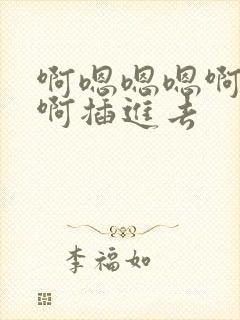 啊嗯嗯嗯啊
啊插進去
李福如